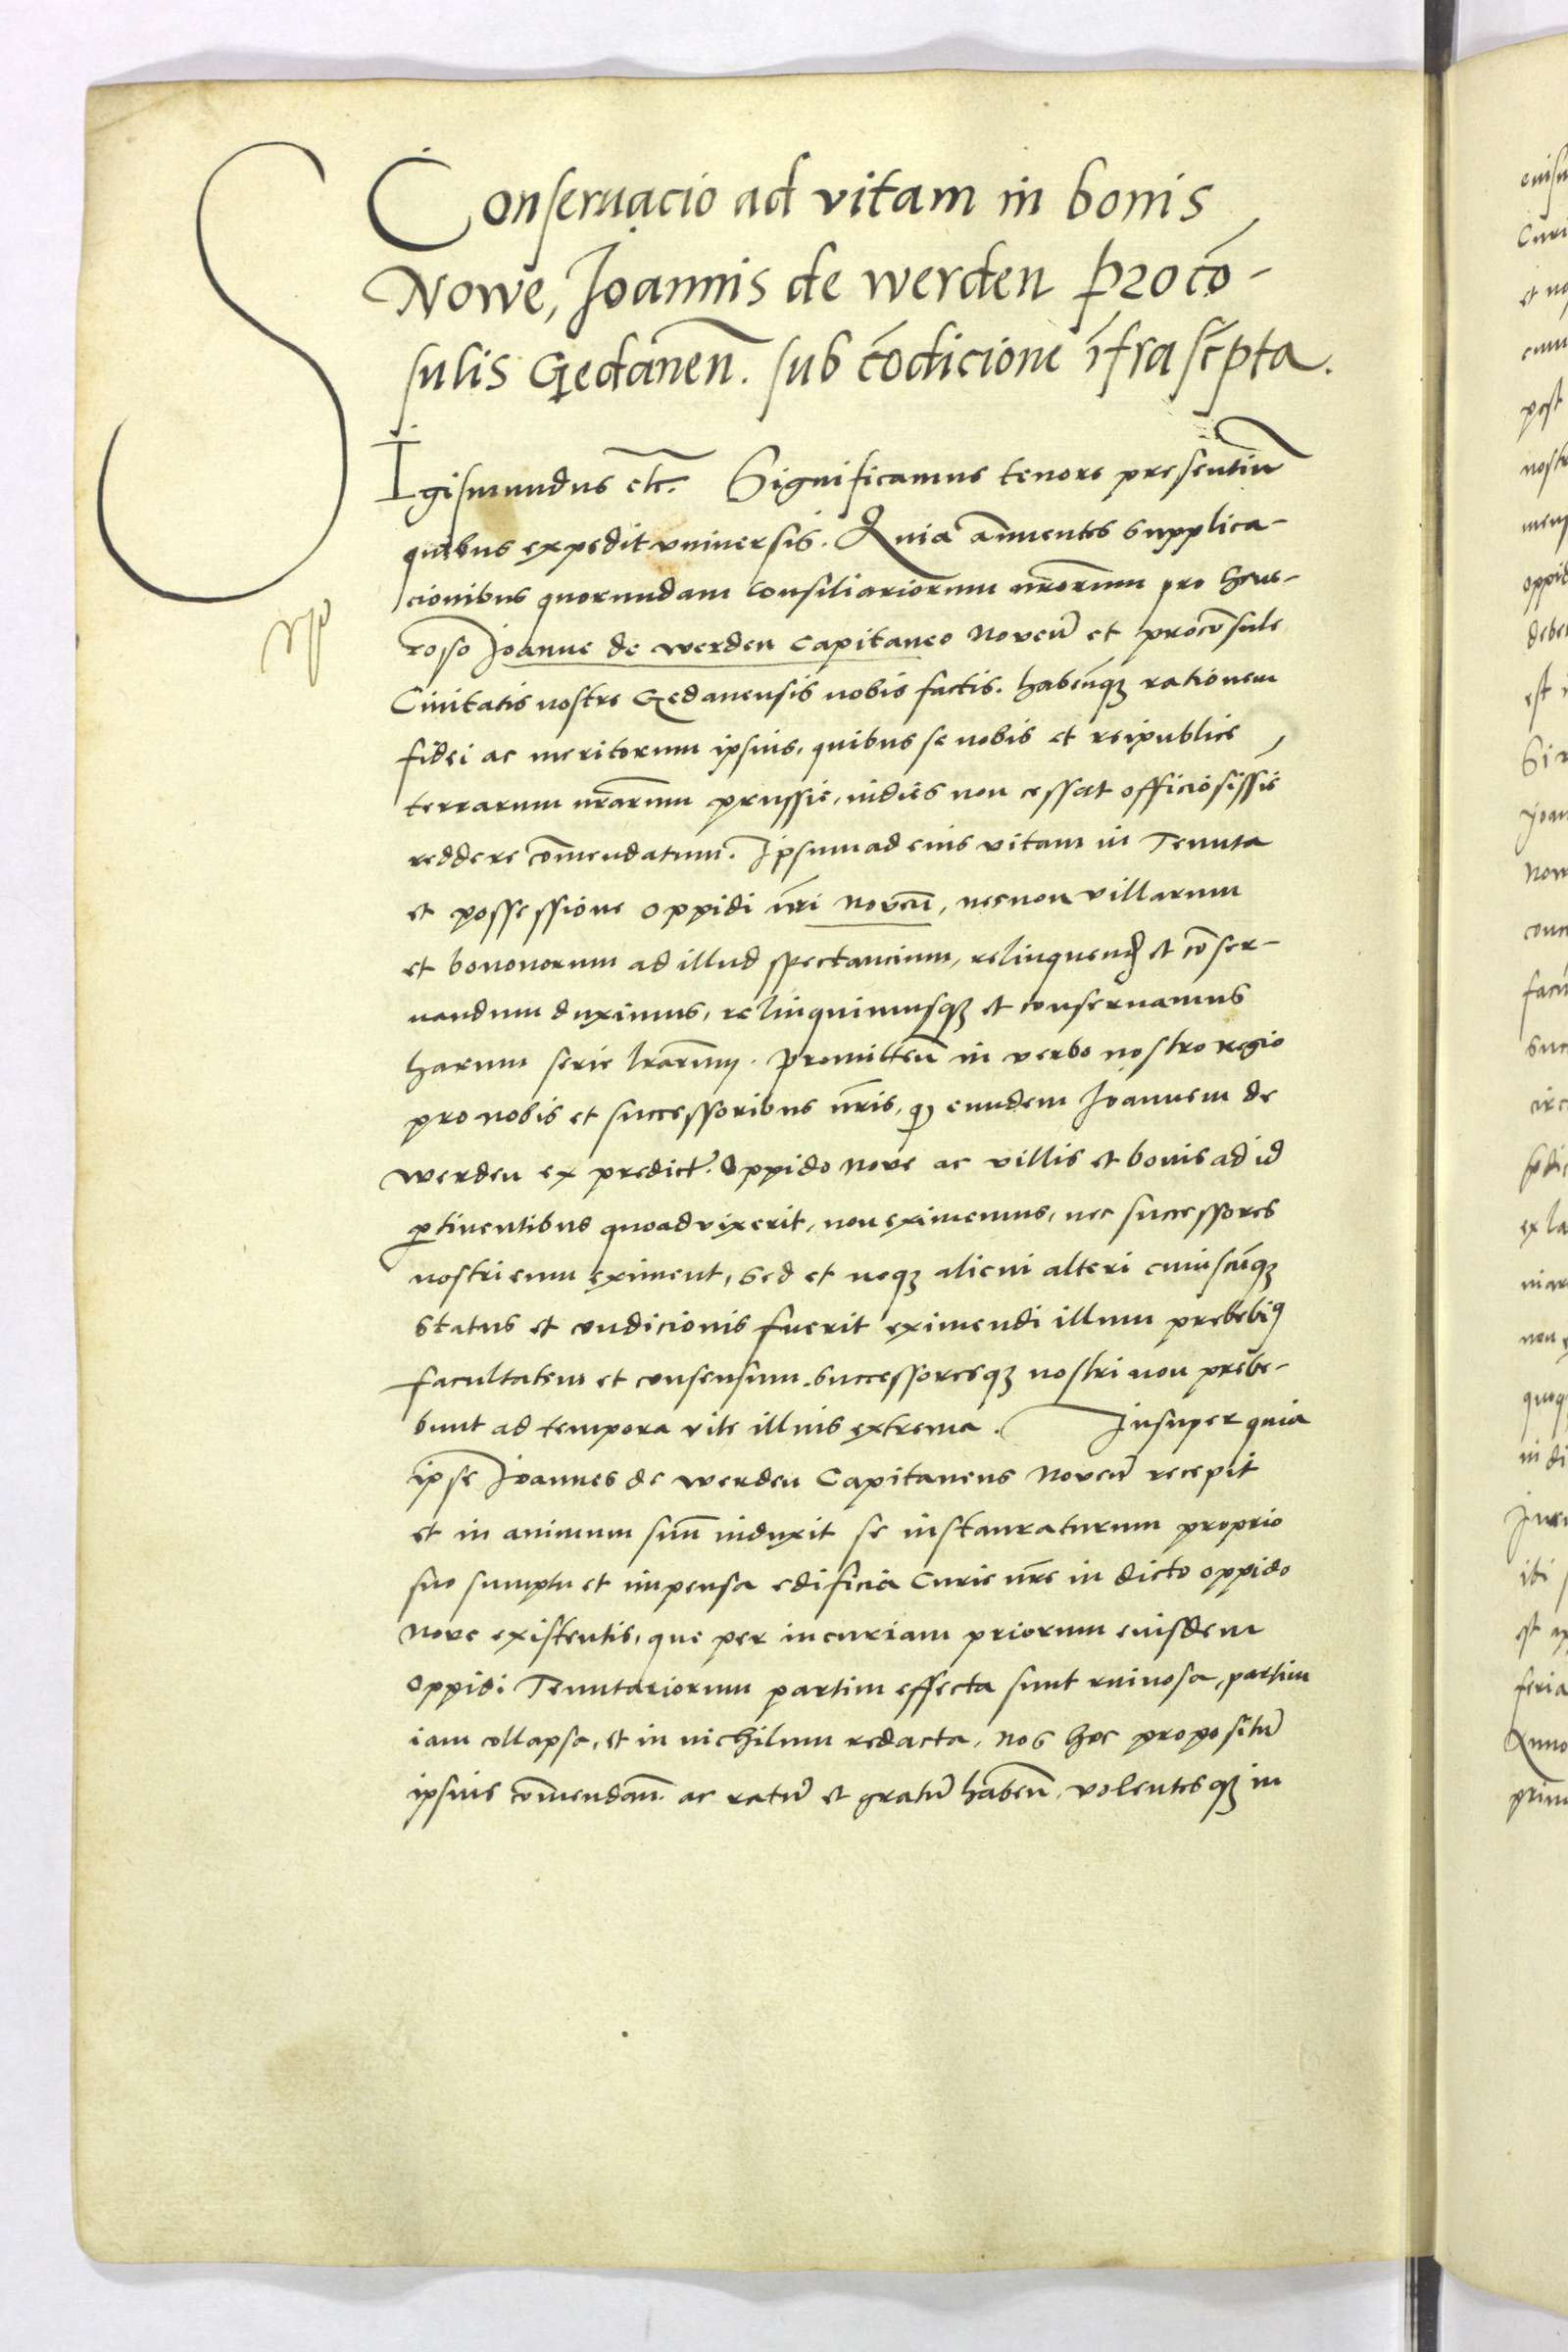 Conseruacio ad vitam in bonis
Nowe, Joannis de werden Procō-
sulis Gedaneñ. sub cōdicione īfrasc̄pta.
SIgismundus etc̄. Significamus tenore presentiū
quibus expedit vniuersis. Quia añuentes supplica-
cionibus quorundam consiliariorum nr̄orum pro Gene-
roso Joanne de werden Capitaneo Noveñ et procōsule
Ciuitatis nostre Gedanensis nobis factis. habeñqꝫ rationem
fidei ac meritorum ipsius, quibus se nobis et reipublice
terrarum nr̄arum prussie, indies non cessat officiosissie
reddere cōmendatum. Ipsum ad eius vitam in Tenuta
et possessione oppidi nr̄i noveñ, necnon villarum
et bononorum ad illud spectancium, relinquend et cōser-
uandum duximus, relinquimusqꝫ et conseruamus
harum serie lr̄arum. Promitteñ in verbo nostro regio
pro nobis et successoribus nr̄is, ꝙ eundem Joannem de
werden ex predict. Oppido nove ac villis et bonis ad id
ꝑtinentibus quoad vixerit, non eximemus, nec successores
nostri eum eximent, sed et neqꝫ alicui alteri cuiuscūqꝫ
status et condicionis fuerit eximendi illum prebebimꝰ
facultatem et consensum. successoresqꝫ nostri non prebe-
bunt ad tempora vite illius extrema. Insuper quia
ipse Joannes de werden Capitaneus Noveñ recepit
et in animum suū induxit se instauraturum proprio
suo sumptu et impensa edificia Curie nr̄e in dicto oppido
Nove existentis, que per incuriam priorum eiusdem
Oppidi Tenutariorum partim effecta sunt ruinosa, partim
iam collapsa, et in nichilum redacta, Nos hoc propositū
ipsius cōmendañ. ac ratū et gratū habeñ, volentesqꝫ in